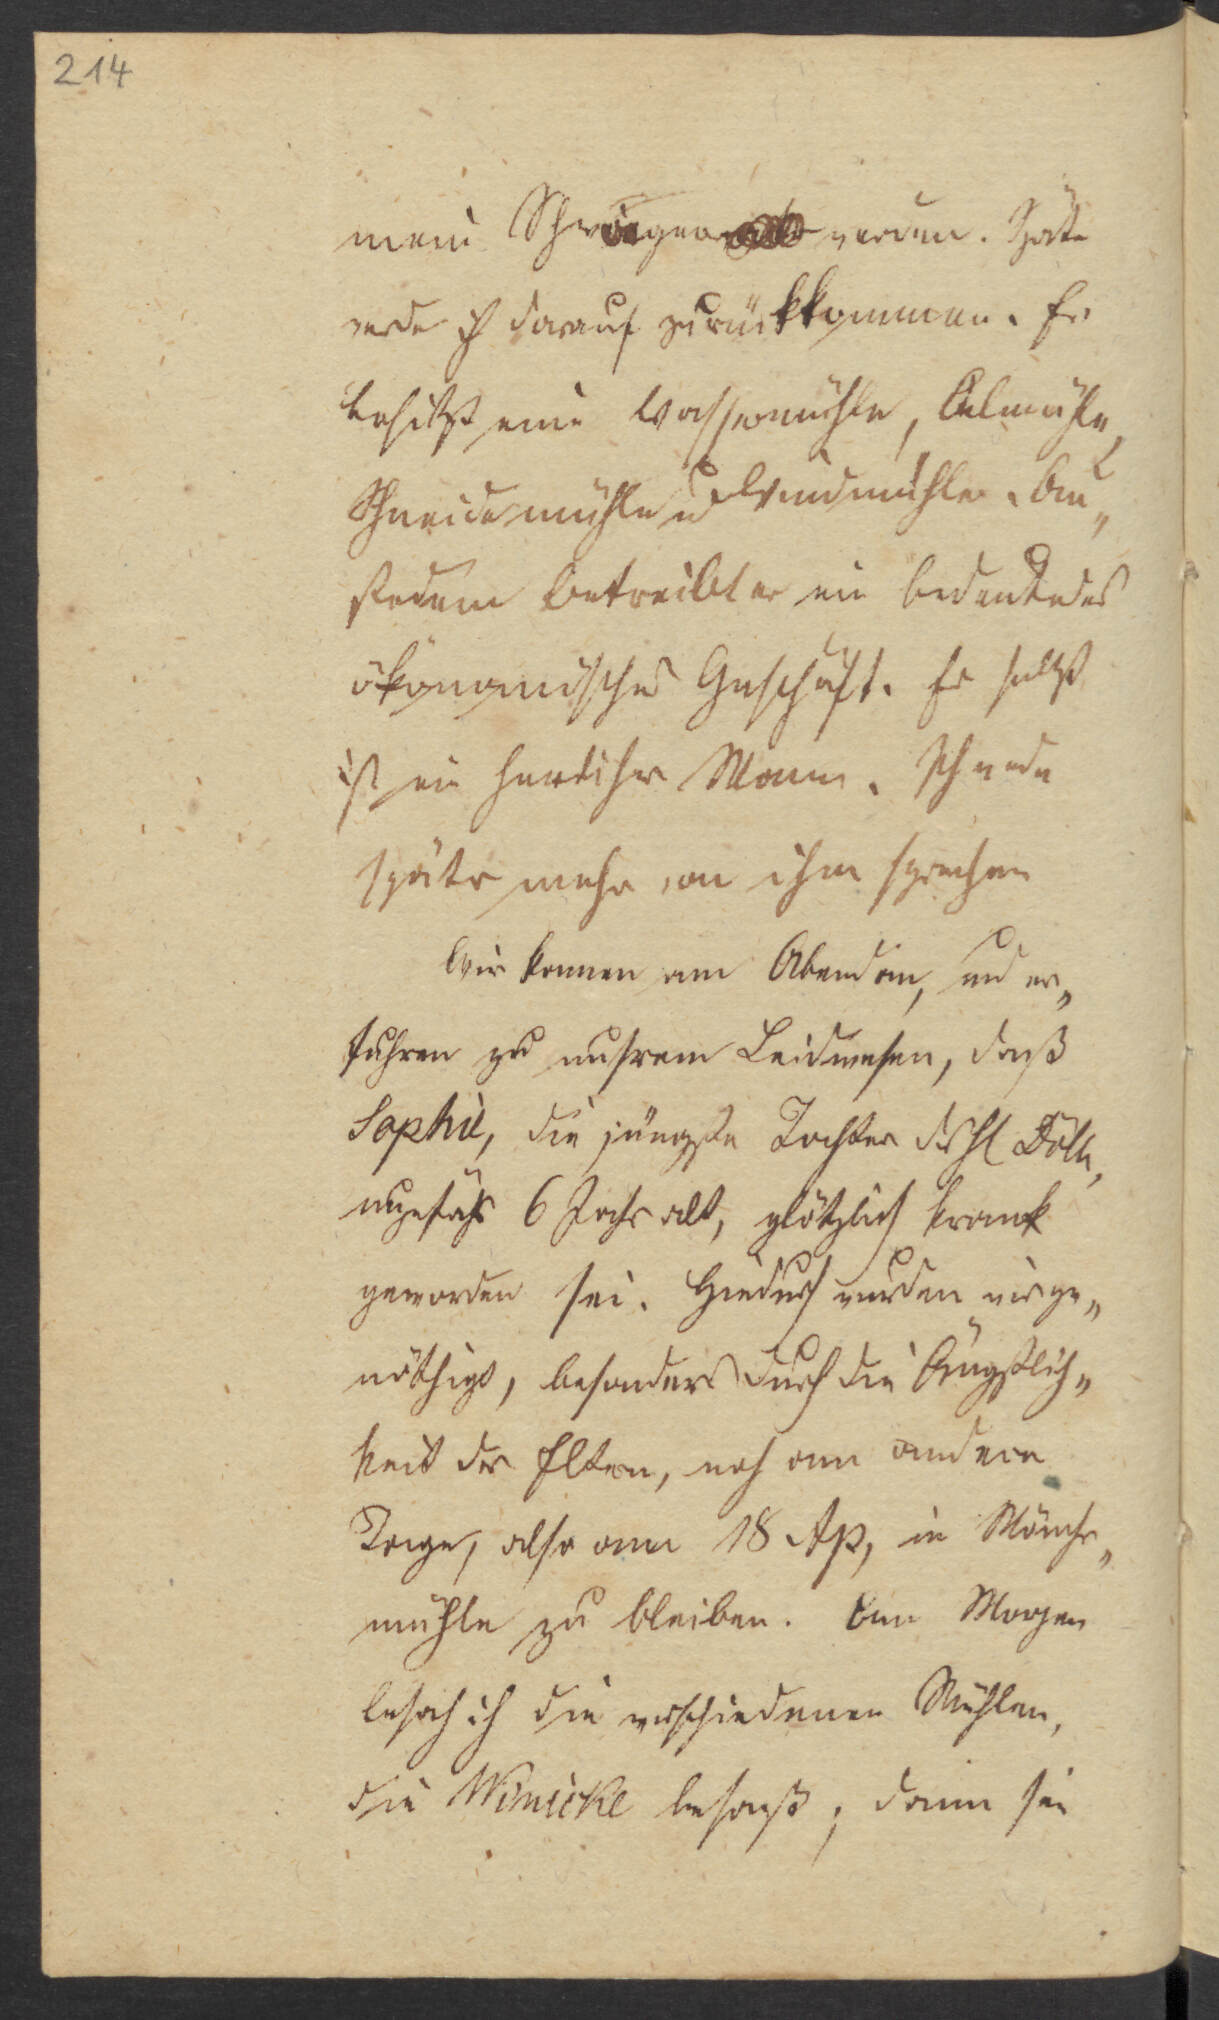 214
mein Schwager werden. Später
werde ich darauf zurückkommen. Er
besitzt eine Wassermühle, Oelmühle,
Schneidemühle u Windmühle. Au„
ßerdem betreibt er ein bedeutendes
ökonomisches Geschäft. Er selbst
ist ein herrlicher Mann. Ich werde
später mehr von ihm sprechen
Wir kamen am Abend an, und er„
fuhren zu unsrem Leidwesen, daß
Sophie, die jüngste Tochter des H Döll,
ungefähr 6 Jahr alt, plötzlich krank
geworden sei. Hiedurch wurden wir ge„
nöthigt, besonders durch die Ängstlich„
keit der Eltern, noch am andern
Tage, also am 18 Ap, in Mönchs„
mühle zu bleiben. Am Morgen
besah ich die verschiedenen Mühlen,
die Winicke besaß, dann sie